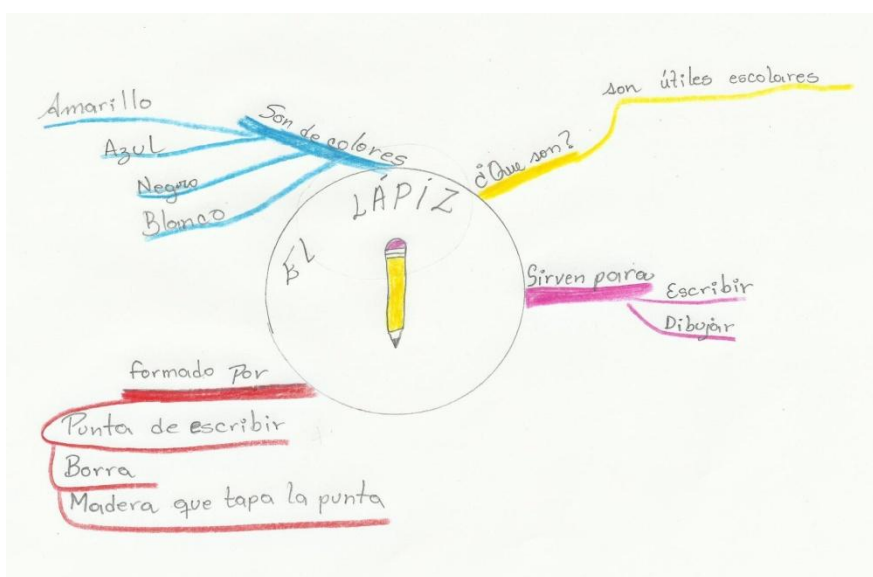 ÉL LÁPIZ
Son de colores
Amarillo
Azul
Negro
Blanco
¿Que son?
son útiles escolares
Sirven para
Escribir
Dibujar
formado Por
Punta de escribir
Borra
Madera que tapa la punta